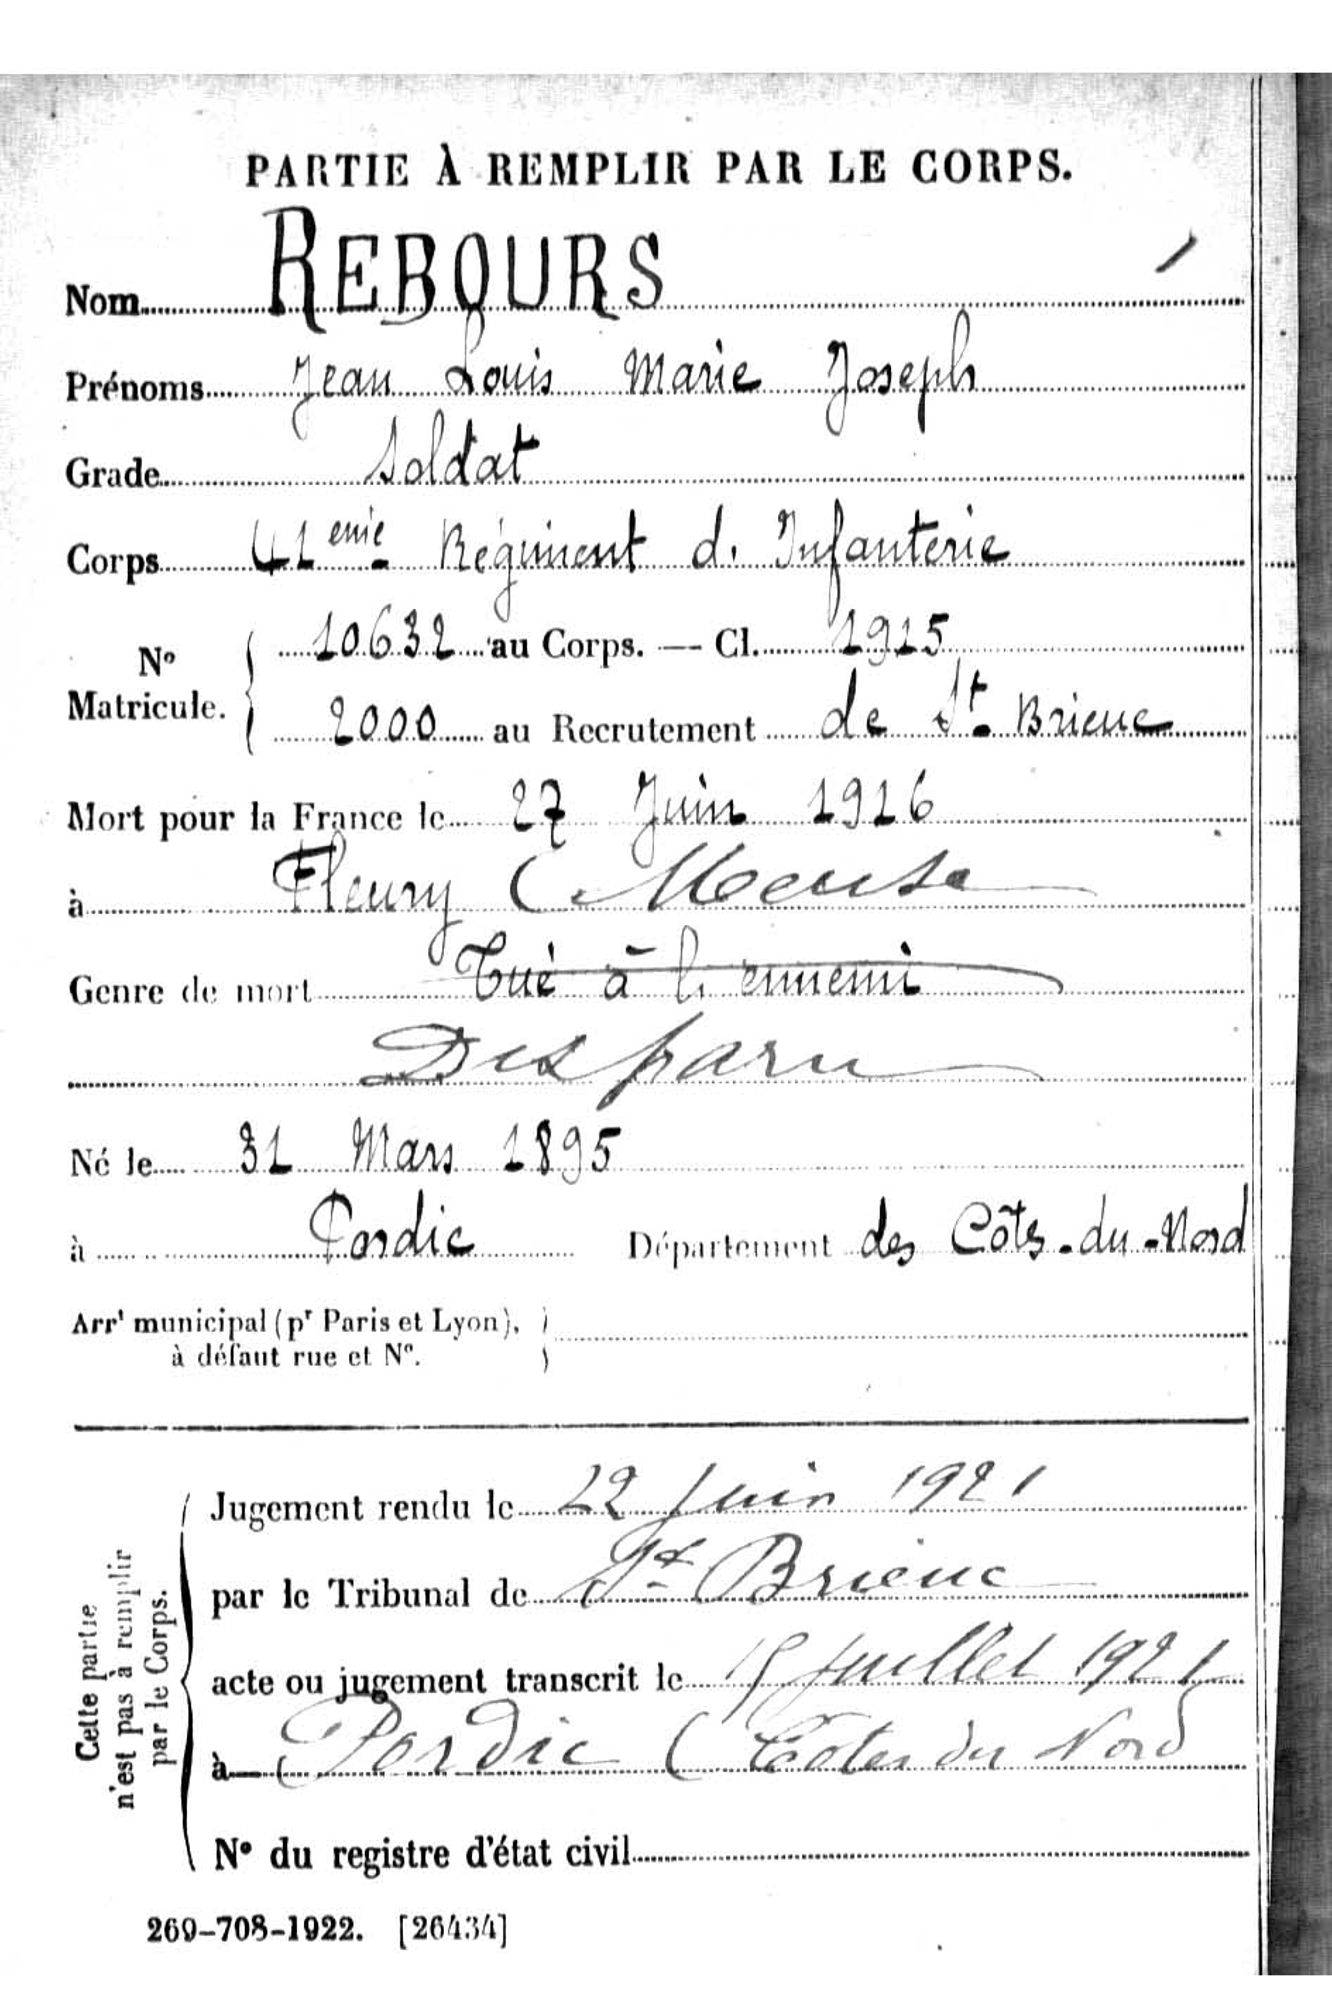 PARTIE À REMPLIR PAR LE CORPS.
Nom REBOURS
Prénoms Jean Louis Marie Joseph
Grade Soldat
Corps 41eme Régiment d. Infanterie
No Matricule. 10632 au Corps. — Cl. 1915
2000 au Recrutement de St Brieuc
Mort pour la France le 27 Juin 1916
à Fleury (Meuse
Genre de mort Tué à l. ennemi
Disparu
Né le 31 Mars 1895
à Pordic Département des Côts-du-Nord
Arrt municipal (pr Paris et Lyon),
à défaut rue et No.
Cette partie
n'est pas à remplir
par le Corps.
Jugement rendu le 22 Juin 1921
par le Tribunal de St Brieuc
acte ou jugement transcrit le 15 Juillet 1921
à Pordic (Côtes du Nord
No du registre d'état civil
269-708-1922. [26434]